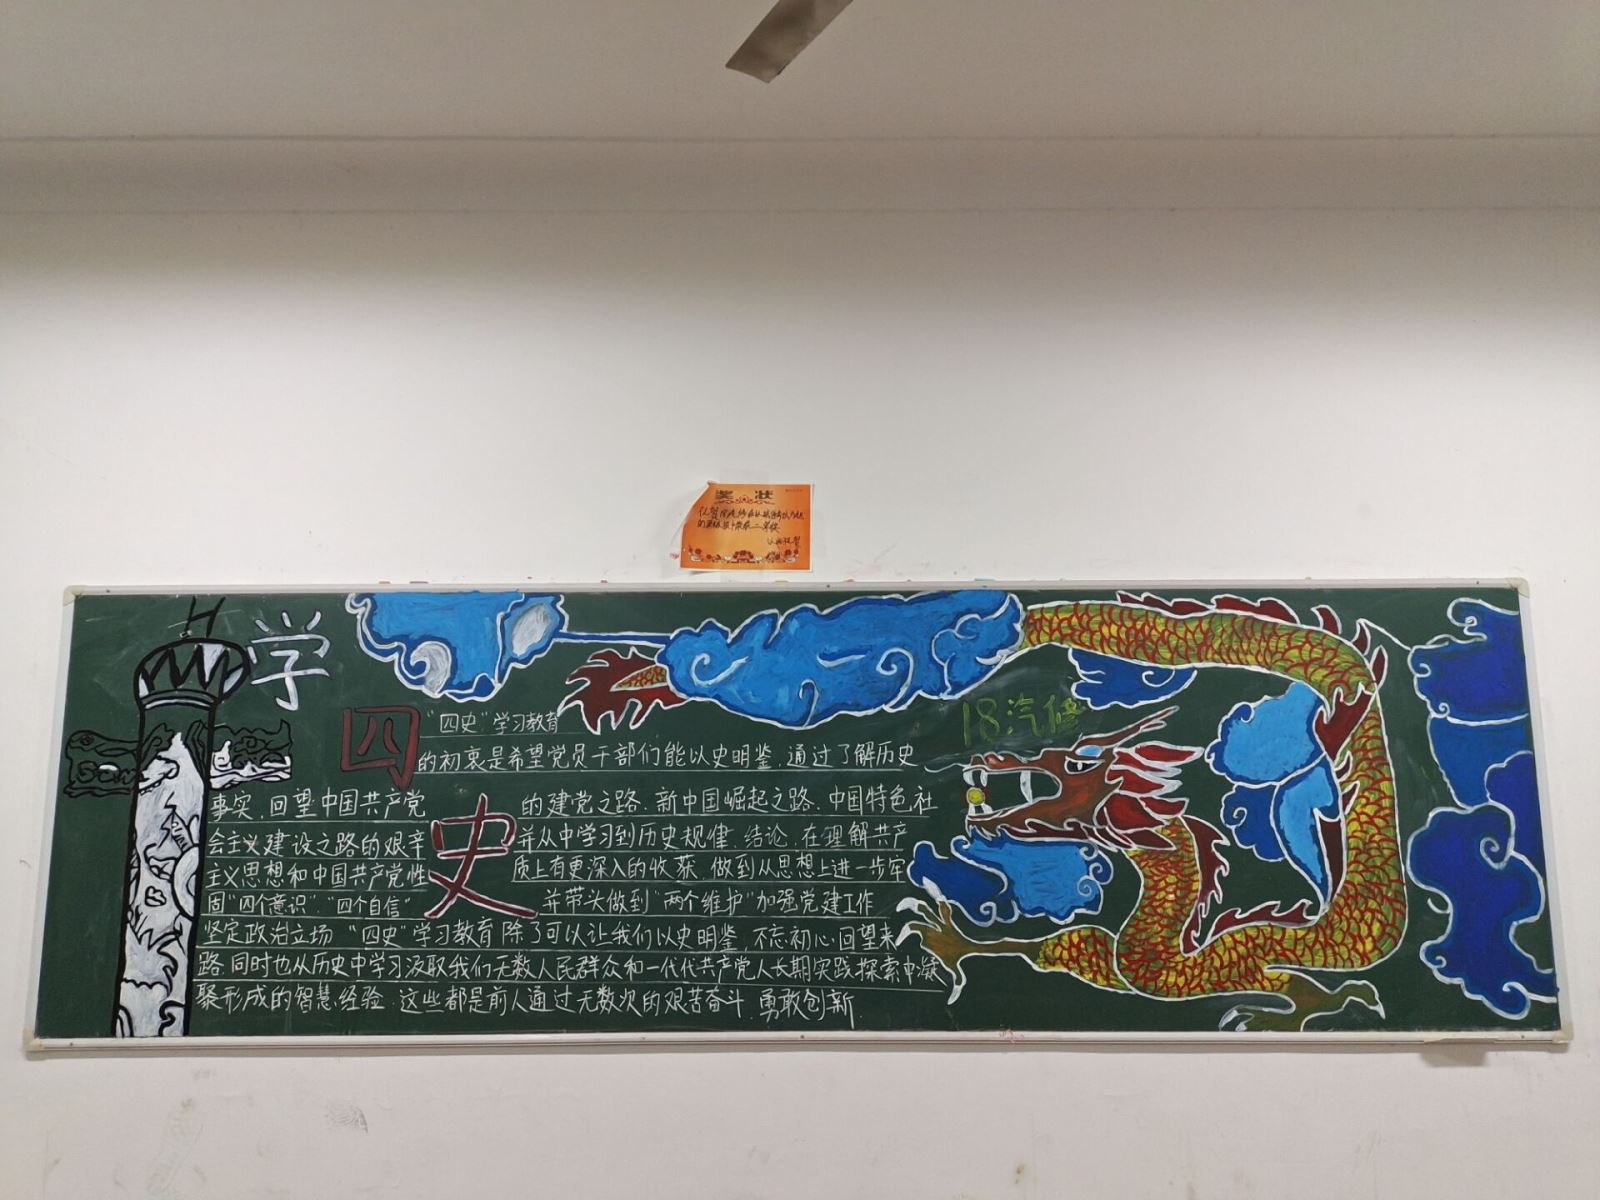 奖 状
学
四
史
18汽修
"四史"学习教育
的初衷是希望党员干部们能以史明鉴,通过了解历史
事实,回望中国共产党的建党之路.新中国崛起之路.中国特色社
会主义建设之路的艰辛并从中学习到历史规律.结论,在理解共产
主义思想和中国共产党性质上有更深入的收获,做到从思想上进一步牢
固"四个意识"."四个自信"并带头做到"两个维护"加强党建工作
坚定政治立场 "四史"学习教育除了可以让我们以史明鉴,不忘初心.回望来
路.同时也从历史中学习汲取我们无数人民群众和一代代共产党人长期实践探索中凝
聚形成的智慧经验.这些都是前人通过无数次的艰苦奋斗.勇敢创新.